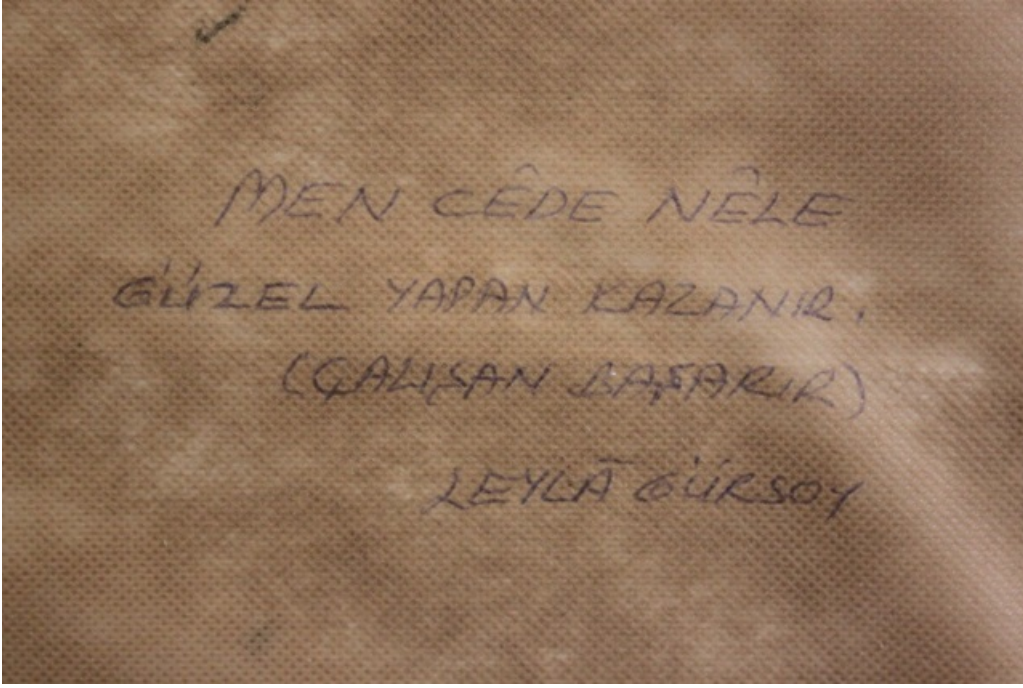 MEN CÊDE NÊLE
GÜZEL YAPAN KAZANIR.
(ÇALIŞAN BAŞARIR)
LEYLÂ GÜRSOY